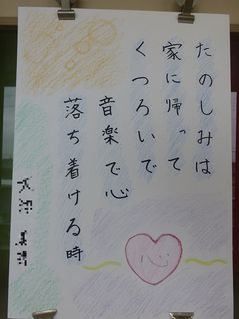 たのしみは
家に帰って
くつろいで
音楽で心
落ち着ける時